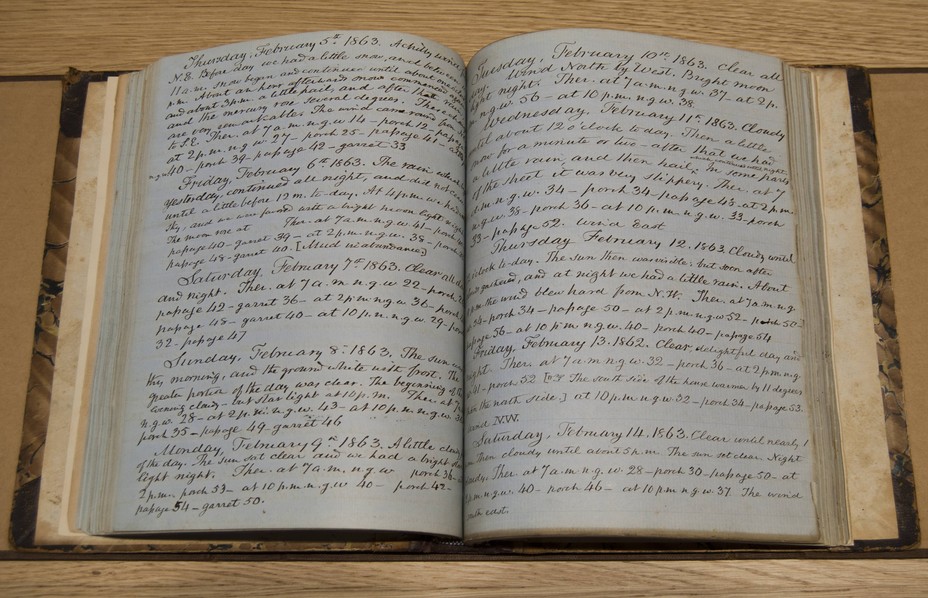 Thursday, February 5th 1863. A chilly wind
N.E. Before day we had a little snow, and between
11 a.m. snow began and continued until about one
p.m. About an hour afterwards snow commenced again
and about 3 p.m. a little hail, and after that rain
and the mercury rose several degrees. These
are very remarkable. The wind came round from
to S.E. Ther. at 7 a.m. n.g.w 14 - porch 12 - pap
at 2 p.m. n.g.w 27 - porch 25 - papage 41 -
n.g.w 40 - porch 39 - papage 42 - garret 33
Friday, February 6th 1863. The rain which
yesterday, continued all night, and did not
until a little before 12 m. to-day. At 4 p.m. we had
sky, and we are favored with a bright moon light
The moon rose at Ther. at 7 a.m. n.g.w. 41 - porch
papage 40 - garret 39 - at 2 p.m. n.g.w. 38 - porch
papage 48 - garret 40. [Mud in abundance]
Saturday, February 7th 1863. Clear all day
and night. Ther. at 7 a.m n.g.w 22 - porch
papage 42 - garret 36 - at 2 p.m n.g.w 36 -
papage 45 - garret 40 - at 10 p.m. n.g.w. 29 - porch
32 - papage 47
Sunday, February 8th 1863. The sun
this morning, and the ground white with frost. The
greater portion of the day was clear. The beginning of
evening cloudy - but star light at 10 p.m. Ther at 7
n.g.w. 28 - at 2 p.m. n.g.w. 43 - at 10 p.m. n.g.w. 38
porch 35 - papage 49 - garret 46
Monday, February 9th 1863. A little cloudy
of the day. The sun set clear and we had a bright
light night. Ther. at 7 a.m. n.g.w porch 36 -
2 p.m. porch 53 - at 10 p.m. n.g.w 40 - porch 42 -
papage 54 - garret 50.
Tuesday, February 10th 1863. Clear all
day. Wind North by West. Bright moon
light night. Ther. at 7 a.m. n.g.w. 37 - at 2 p.
n.g.w. 56 - at 10 p.m. n.g.w. 38.
Wednesday, February 11th 1863. Cloudy
until about 12 o'clock to-day. Then a little
snow for a minute or two - after that we had
a little rain, and then hail, in some parts
of the street it was very slippery. Ther. at 7
a.m. n.g.w. 34 - porch 34 - papage 48 - at 2 p.m.
n.g.w. 35 - porch 36 - at 10 p.m. n.g.w. 33 - porch
33 - papage 52. wind east
Thursday February 12. 1863. Cloudy until
o'clock to-day. The sun then was visible, but soon after
gathered, and at night we had a little rain. About
p.m the wind blew hard from N.W. Ther. at 7 a.m. n.g.
w. 34 - porch 34 - papage 50 - at 2 p.m. n.g.w 52 - porch 50
papage 56 - at 10 p m n.g.w. 40 - porch 40 - papage 54
Friday, February 13. 1862. Clear, delightful day and
night. Ther. at 7 a.m n.g.w. 32 - porch 36 - at 2 p.m n.g.
w. 41 - porch 52 The south side of the house warmer by 11 degrees
than the north side.] at 10 p.m. n.g.w. 32 - porch 34 - papage 53.
wind N.W.
Saturday, February 14. 1863. Clear until nearly 1
p.m. Then cloudy until about 5 p.m. The sun set clear. Night
cloudy. Ther at 7 a.m. n.g.w. 28 - porch 30 - papage 50 - at
2 p.m n.g.w. 40 - porch 46 - at 10 p.m n.g.w. 37. The wind
east.